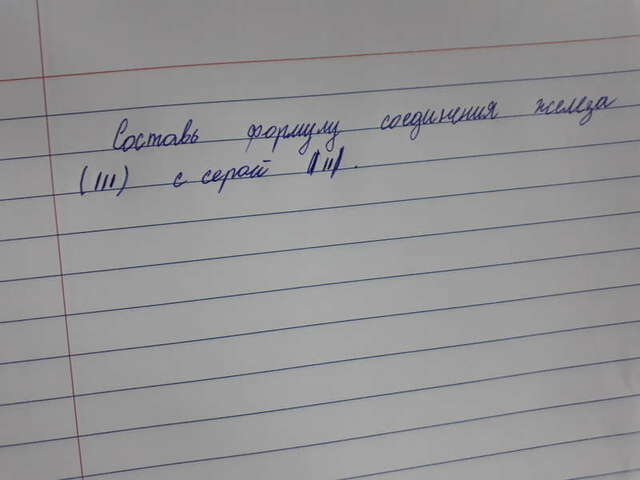 Составь формулу соединения железа
(III) с серой (II).